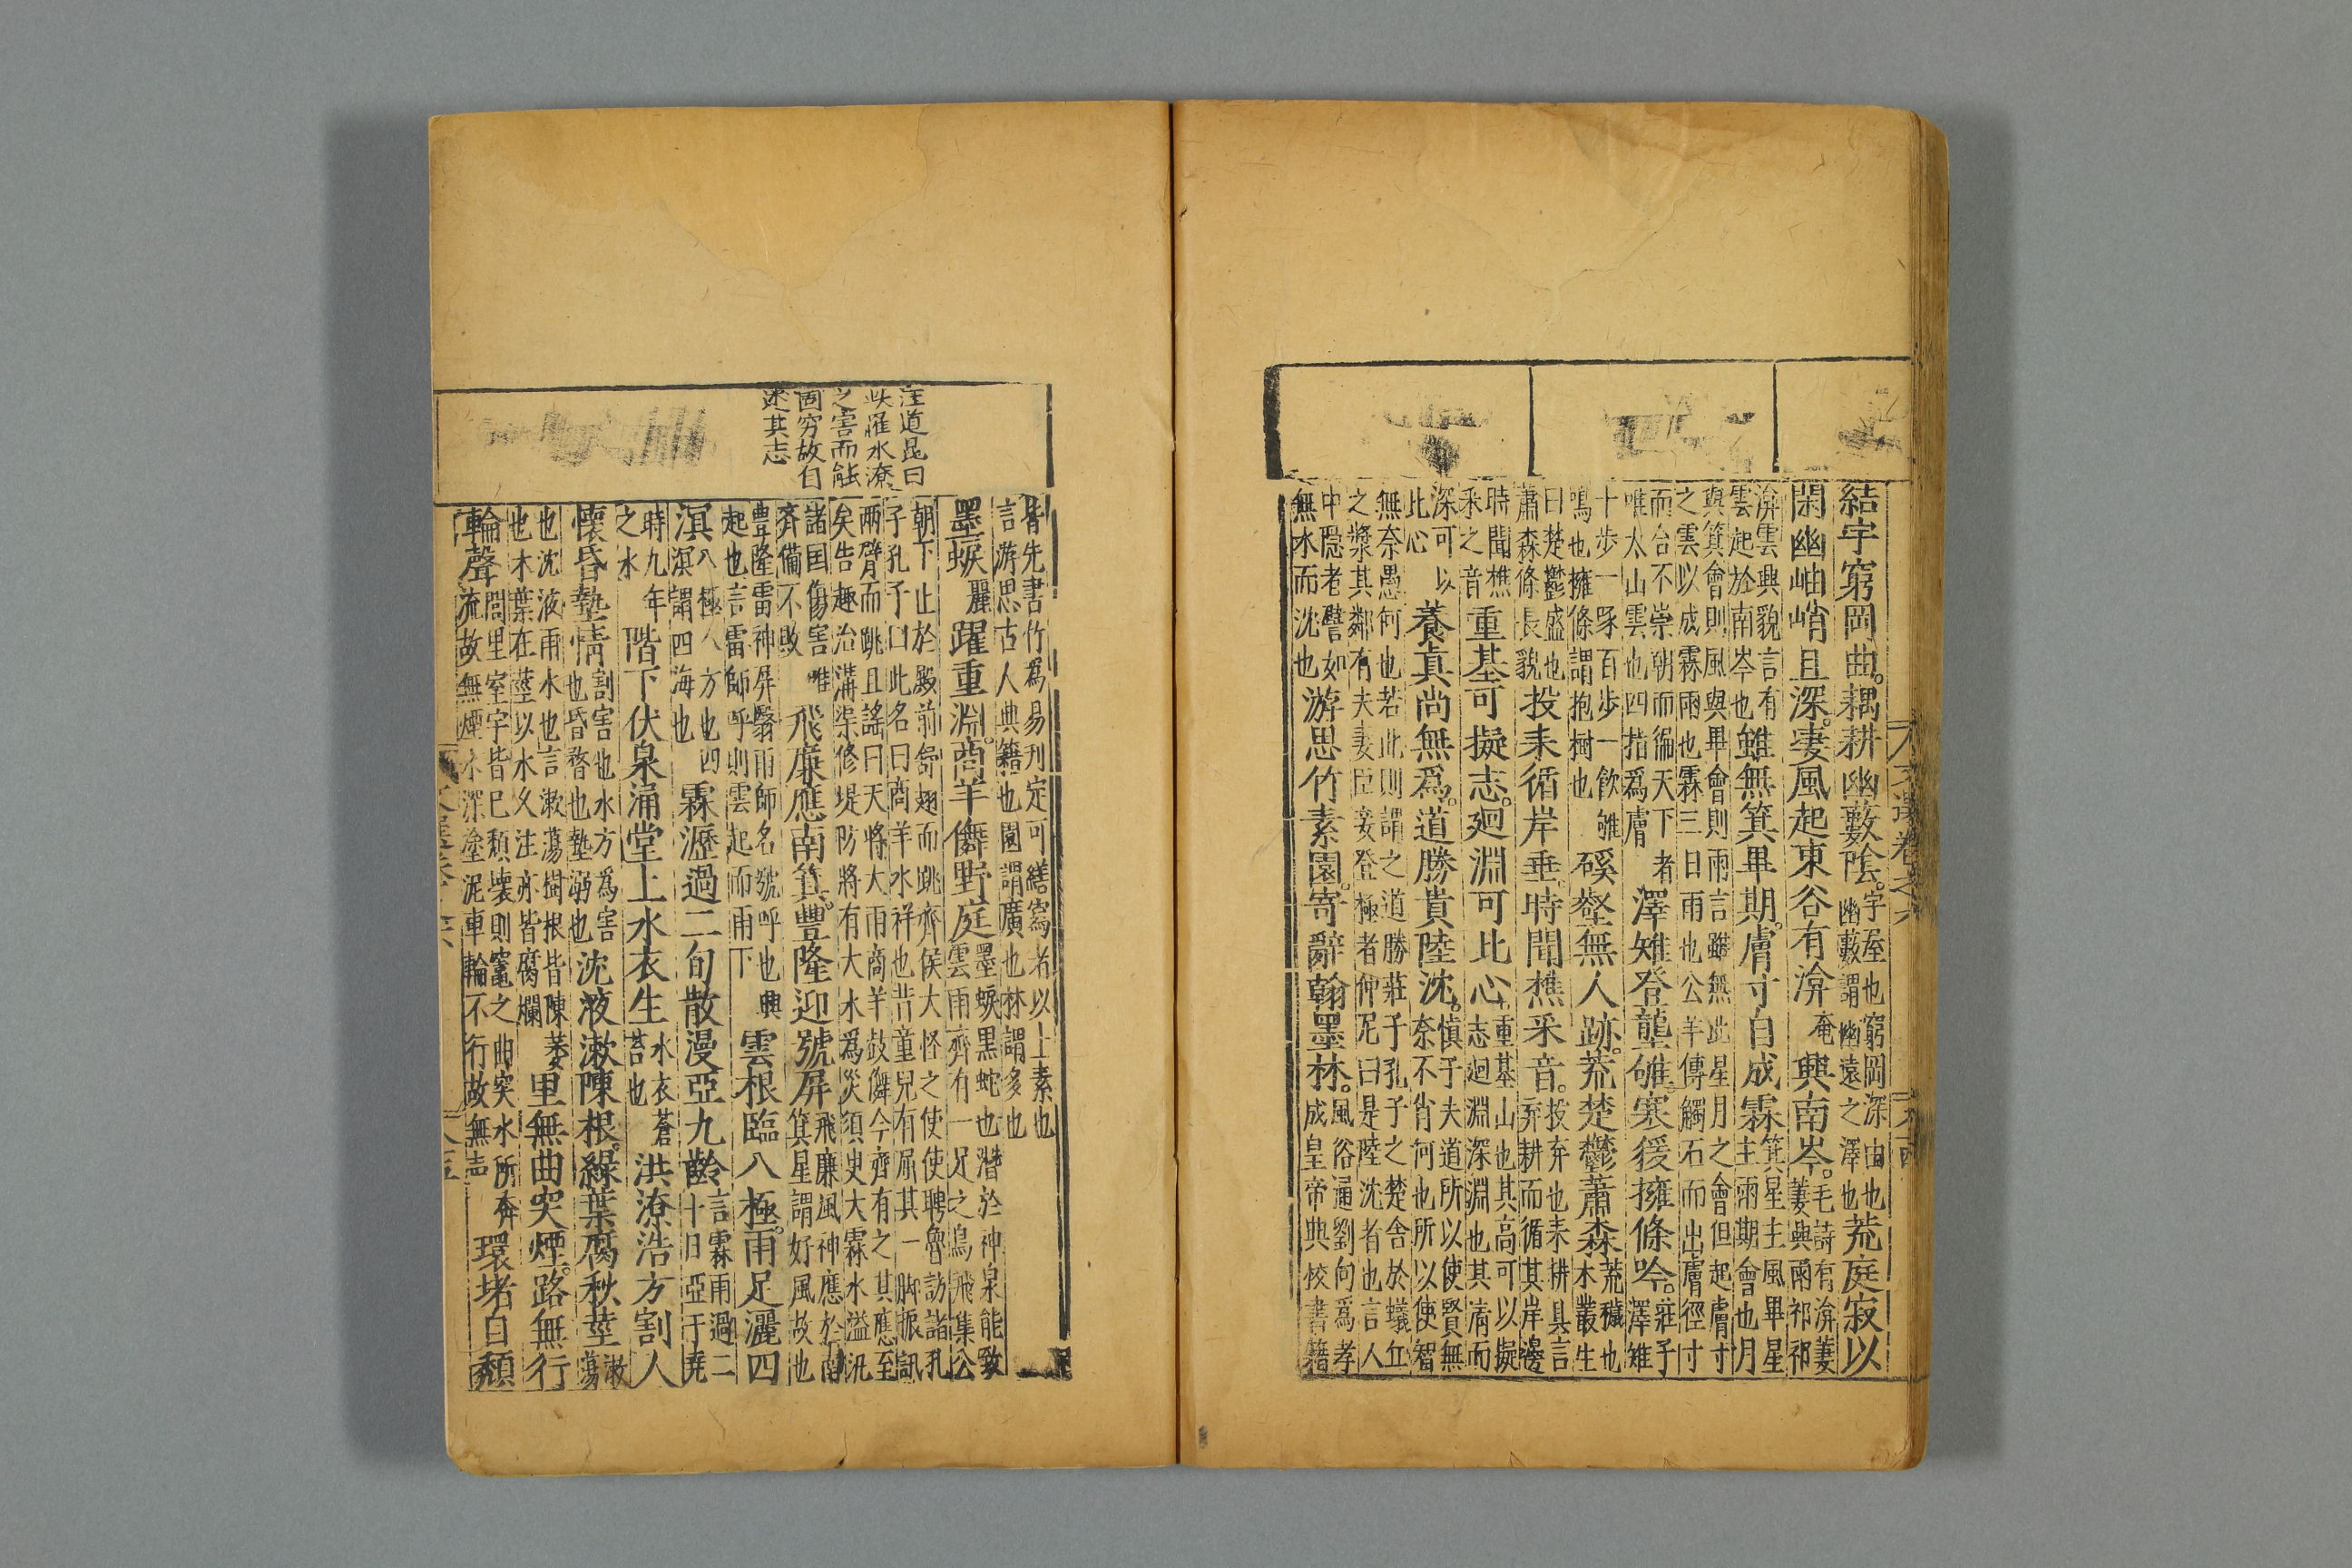 文選卷之六
結宇窮岡曲。耦耕幽藪陰。宇屋也窮岡深曲也幽藪謂幽遠之澤也荒庭寂以
閑幽岫峭且深。淒風起東谷有渰奄興南岑。毛詩有渰萋萋興雨祁祁
渰雲興貌言有雲起於南岑也雖無箕畢期。膚寸自成霖箕星主風畢星主雨期會也月
與箕會則風與畢會則雨言雖無此星月之會但起膚寸之雲以成霖雨也霖三日雨也公羊傳觸石而出膚徑寸
而合不崇朝而徧天下者唯太山雲也四指爲膚澤雉登壟雊寒猨擁條吟。莊子澤雉
十步一啄百步一飲雊鳴也擁條謂抱樹也磎壑無人跡。荒楚鬱蕭森荒穢也木叢生
曰楚鬱盛也蕭森條長貌投耒循岸垂。時聞樵采音。投弃也耒耕具言弃耕而循其岸邊
時聞樵采之音重基可擬志。廻淵可比心重基山也其高可以擬志迴淵深淵也其清而
深可以比心養真尚無爲。道勝貴陸沈。慎子夫道所以使賢無奈不肖何也所以使智
無奈愚何也若此則謂之道勝莊子孔子之楚舍於蟻丘之漿其鄰有夫妻臣妾登極者仲尼曰是陸沈者也言人
中隱者譬如無水而沈也游思竹素園。寄辭翰墨林。風俗通劉向爲孝成皇帝典校書籍
汪道昆曰
此罹水潦
之害而能
固穷故自
述其志
皆先書竹爲易刊定可繕寫者以上素也言游思古人典籍也園謂廣也林謂多也
墨蜧麗躍重淵。商羊儛野庭墨蜧黑蛇也潛於神泉能致雲雨齊有一足之鳥飛集公
朝下止於殿前舒翅而跳齊侯大怪之使使聘魯訪諸孔子孔子曰此名曰商羊水祥也昔童兒有屈其一脚振訊
兩臂而跳且謠曰天將大雨商羊鼓儛今齊有之其應至矣告趣治溝渠修堤防將有大水爲災須臾大霖水溢汎
諸囯傷害唯齊備不敗飛廉應南箕。豐隆迎號屏飛廉風神應於南箕星謂好風故也
豐隆雷神屏翳雨師名號呼也興起也言雷師呼則雲起而雨下雲根臨八極。雨足灑四
溟八極八方也四溟謂四海也霖瀝過二旬散漫亞九齡言霖雨過二十日亞于堯
時九年之水階下伏泉涌堂上水衣生水衣蒼苔也洪潦浩方割人
懷昏墊情割害也水方爲害也昏瞀也墊溺也沈液漱陳根。綠葉腐秋莖漱蕩
也沈液雨水也言漱蕩樹根皆陳萎也木葉在莖以水久注亦皆腐爛里無曲突煙。路無行
輪聲閭里室宇皆已頹壞則竈之曲突水所奔流故無煙水深塗泥車輪不行故無声環堵自頹